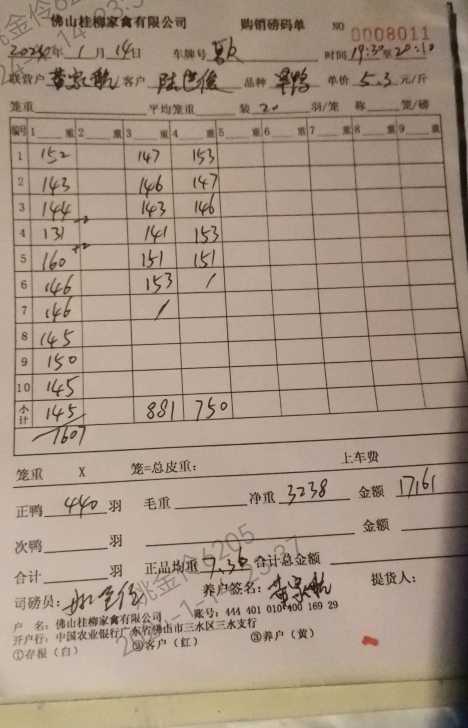 佛山桂柳家禽有限公司 购销磅码单 NO 0008011
2024年 1月 14日 车牌号 时间 19:30至20:10
联营户 客户 品种 单价 5.3 元/斤
笼重 平均笼重 装 20 羽/笼 称 笼/磅
编号 1 重 2 重 3 重 4 重 5 重 6 重 7 重 8 重 9 重
1 152 147 153
2 143 146 147
3 144 143 146
4 131 -2 141 153
5 160 +2 151 151
6 146 153 /
7 146 /
8 145
9 150
10 145
小计 145 881 750
1607
笼重 X 笼=总皮重: 上车费
正鸭 440 羽 毛重 净重 3238 金额 17161
次鸭 羽 金额
合计 羽 正品均重 7.36 合计总金额
司磅员: 养户签名: 提货人:
户 名: 佛山桂柳家禽有限公司 账号: 444 401 010 400 169 29
开户行: 中国农业银行广东省佛山市三水区三水支行
①存根(白) ②客户(红) ③养户(黄)